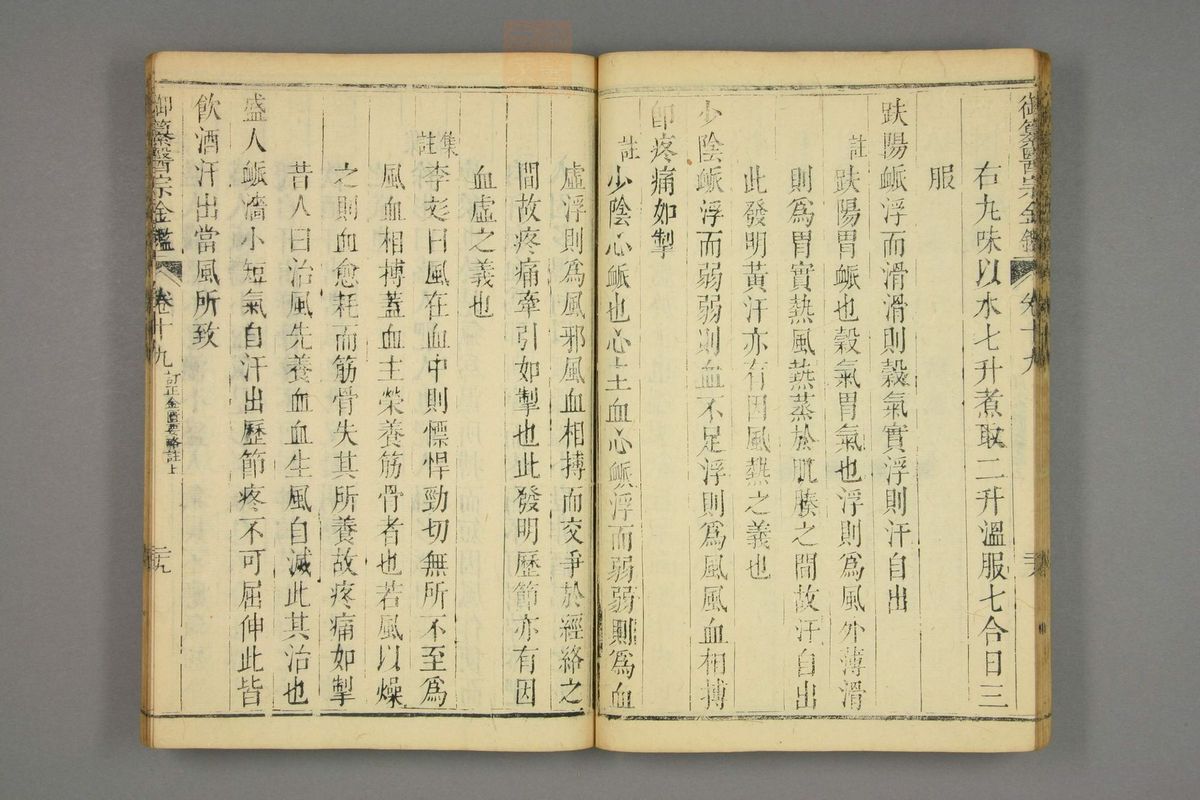 御纂醫宗金鑑 卷十九
右九味以水七升煮取二升溫服七合日三
服
趺陽脈浮而滑滑則穀氣實浮則汗自出
註
趺陽胃脈也穀氣胃氣也浮則爲風外薄滑
則爲胃實熱風熱蒸於肌腠之間故汗自出
此發明黃汗亦有因風熱之義也
少陰脈浮而弱弱則血不足浮則爲風風血相搏
卽疼痛如掣
註
少陰心脈也心主血心脈浮而弱弱則爲血
虛浮則爲風邪風血相搏而交爭於經絡之
間故疼痛牽引如掣也此發明歷節亦有因
血虛之義也
集註
李彣曰風在血中則慓悍勁切無所不至爲
風血相搏蓋血主榮養筋骨者也若風以燥
之則血愈耗而筋骨失其所養故疼痛如掣
昔人曰治風先養血血生風自滅此其治也
盛人脈濇小短氣自汗出歷節疼不可屈伸此皆
飮酒汗出當風所致
御纂醫宗金鑑 卷十九 訂正金匱要略註上 二十九